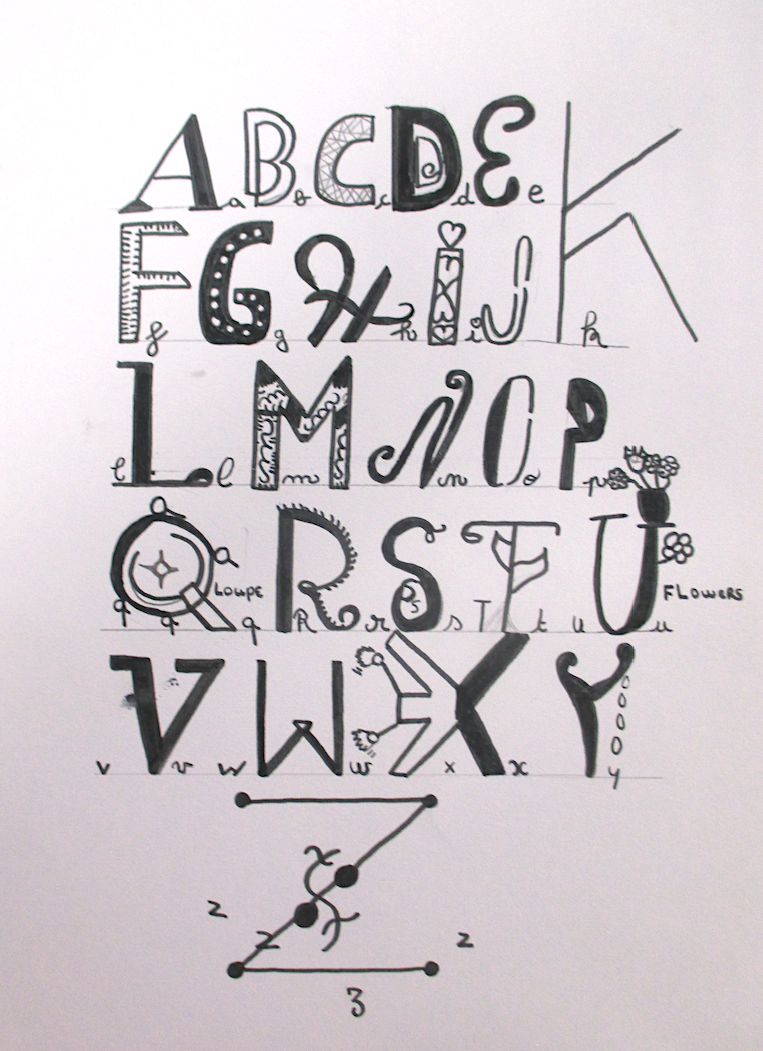 A a B b C c D d E e K k
F f G g H h i i J
l L l M m N n O o P p
Q a a q q q LOUPE R R r S s s T T t U u u FLOWERS
V v v W w w X x x Y y
Z z z z 3